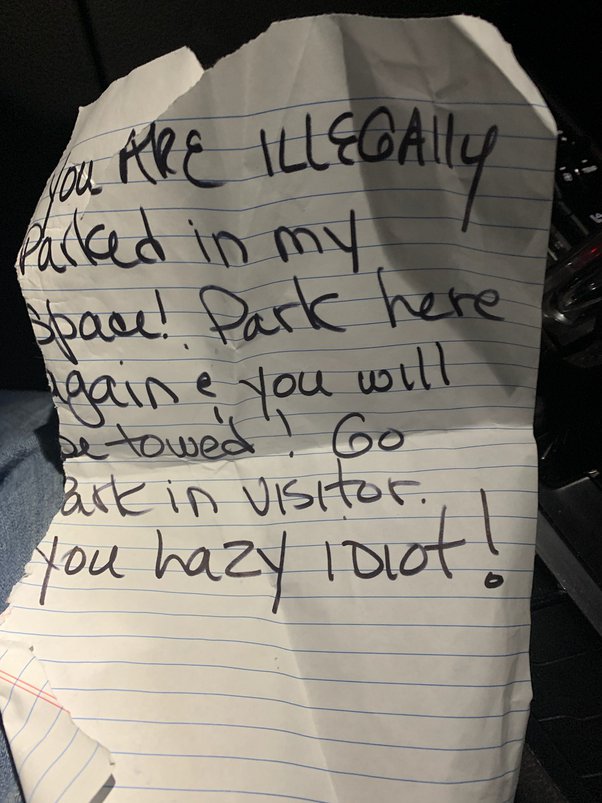 you ARE ILLEGAlly
Parked in my
space! Park here
again & you will
be towed! Go
ark in visitor.
you Lazy idiot!